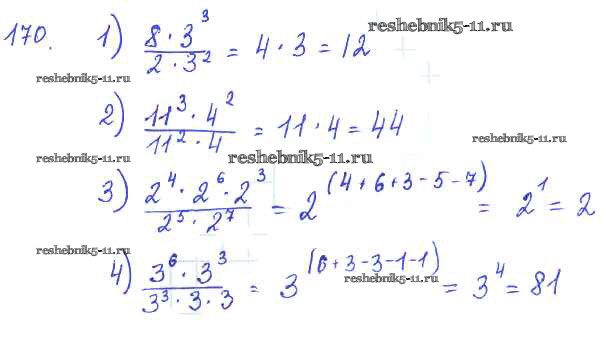 170. 1) (8 · 3³)/(2 · 3²) = 4 · 3 = 12
reshebnik5-11.ru
reshebnik5-11.ru
2) (11³ · 4²)/(11² · 4) = 11 · 4 = 44
reshebnik5-11.ru
reshebnik5-11.ru
reshebnik5-11.ru
3) (2⁴ · 2⁶ · 2³)/(2⁵ · 2⁷) = 2^(4+6+3-5-7) = 2¹ = 2
reshebnik5-11.ru
4) (3⁶ · 3³)/(3³ · 3 · 3) = 3^(6+3-3-1-1) = 3⁴ = 81
reshebnik5-11.ru